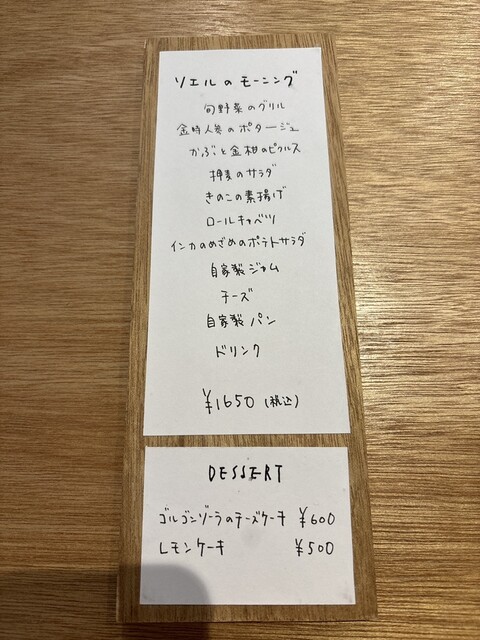 ソエルのモーニング
旬野菜のグリル
金時人参のポタージュ
かぶと金柑のピクルス
押麦のサラダ
きのこの素揚げ
ロールキャベツ
インカのめざめのポテトサラダ
自家製ジャム
チーズ
自家製パン
ドリンク
¥1650(税込)
DESSERT
ゴルゴンゾーラのチーズケーキ ¥600
レモンケーキ ¥500